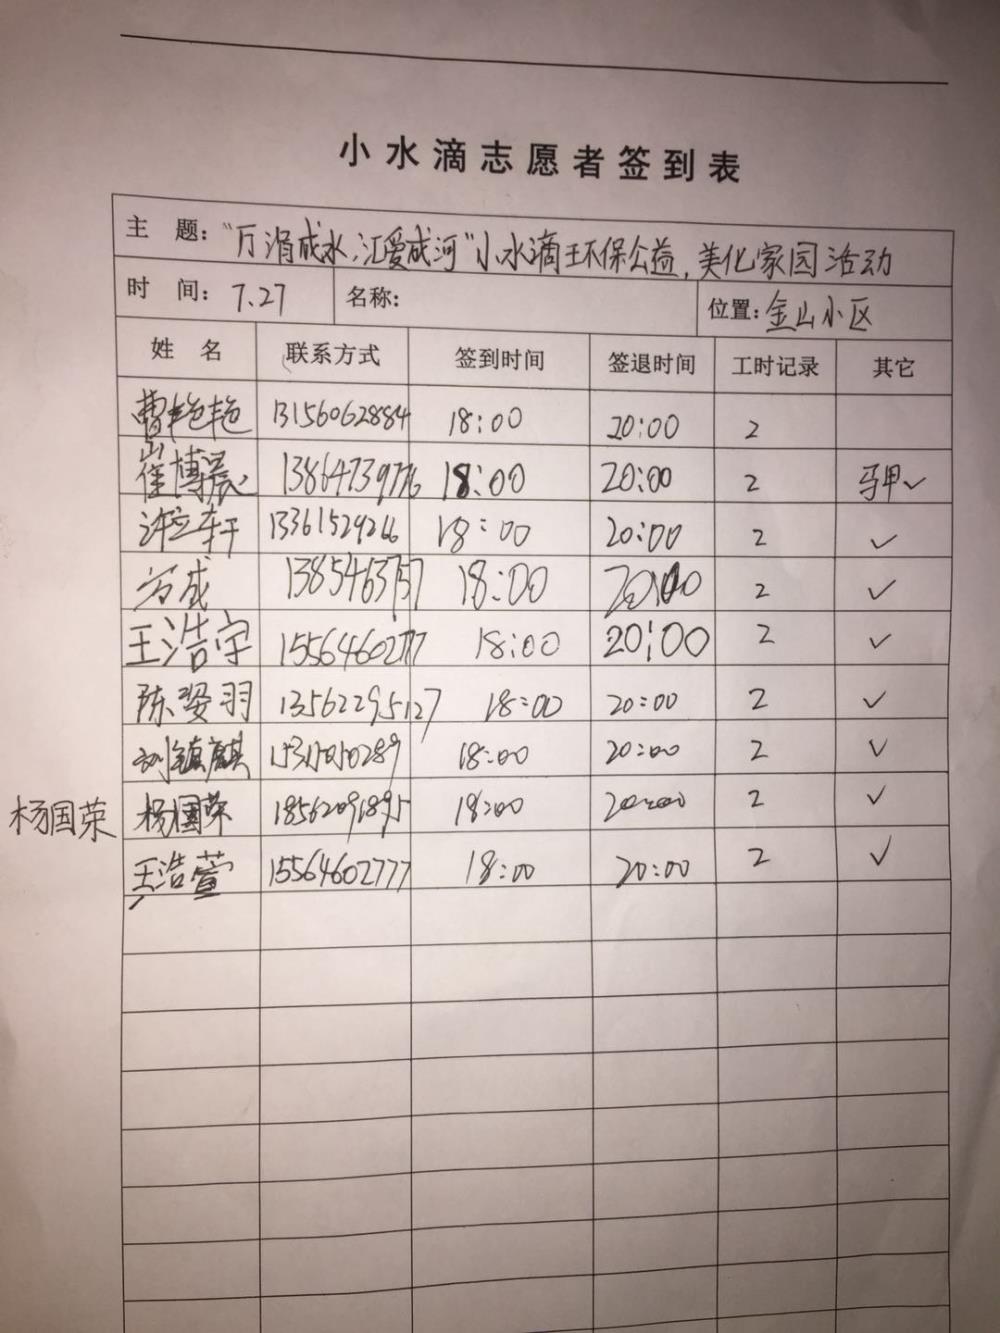 小水滴志愿者签到表
主 题: “万涓成水,汇爱成河”小水滴环保公益,美化家园活动
时 间: 7.27 名称: 位置: 金山小区
姓 名 联系方式 签到时间 签退时间 工时记录 其它
曹艳艳 13156062884 18:00 20:00 2
崔博晨 13864739776 18:00 20:00 2 马甲✓
许立轩 13361529266 18:00 20:00 2 ✓
成 18:00 20:00 2 ✓
王浩宇 15564602777 18:00 20:00 2 ✓
陈姿羽 13562295127 18:00 20:00 2 ✓
刘镇麒 18:00 20:00 2 ✓
杨国荣 杨国荣 18562091895 18:00 20:00 2 ✓
王浩萱 15564602777 18:00 20:00 2 ✓